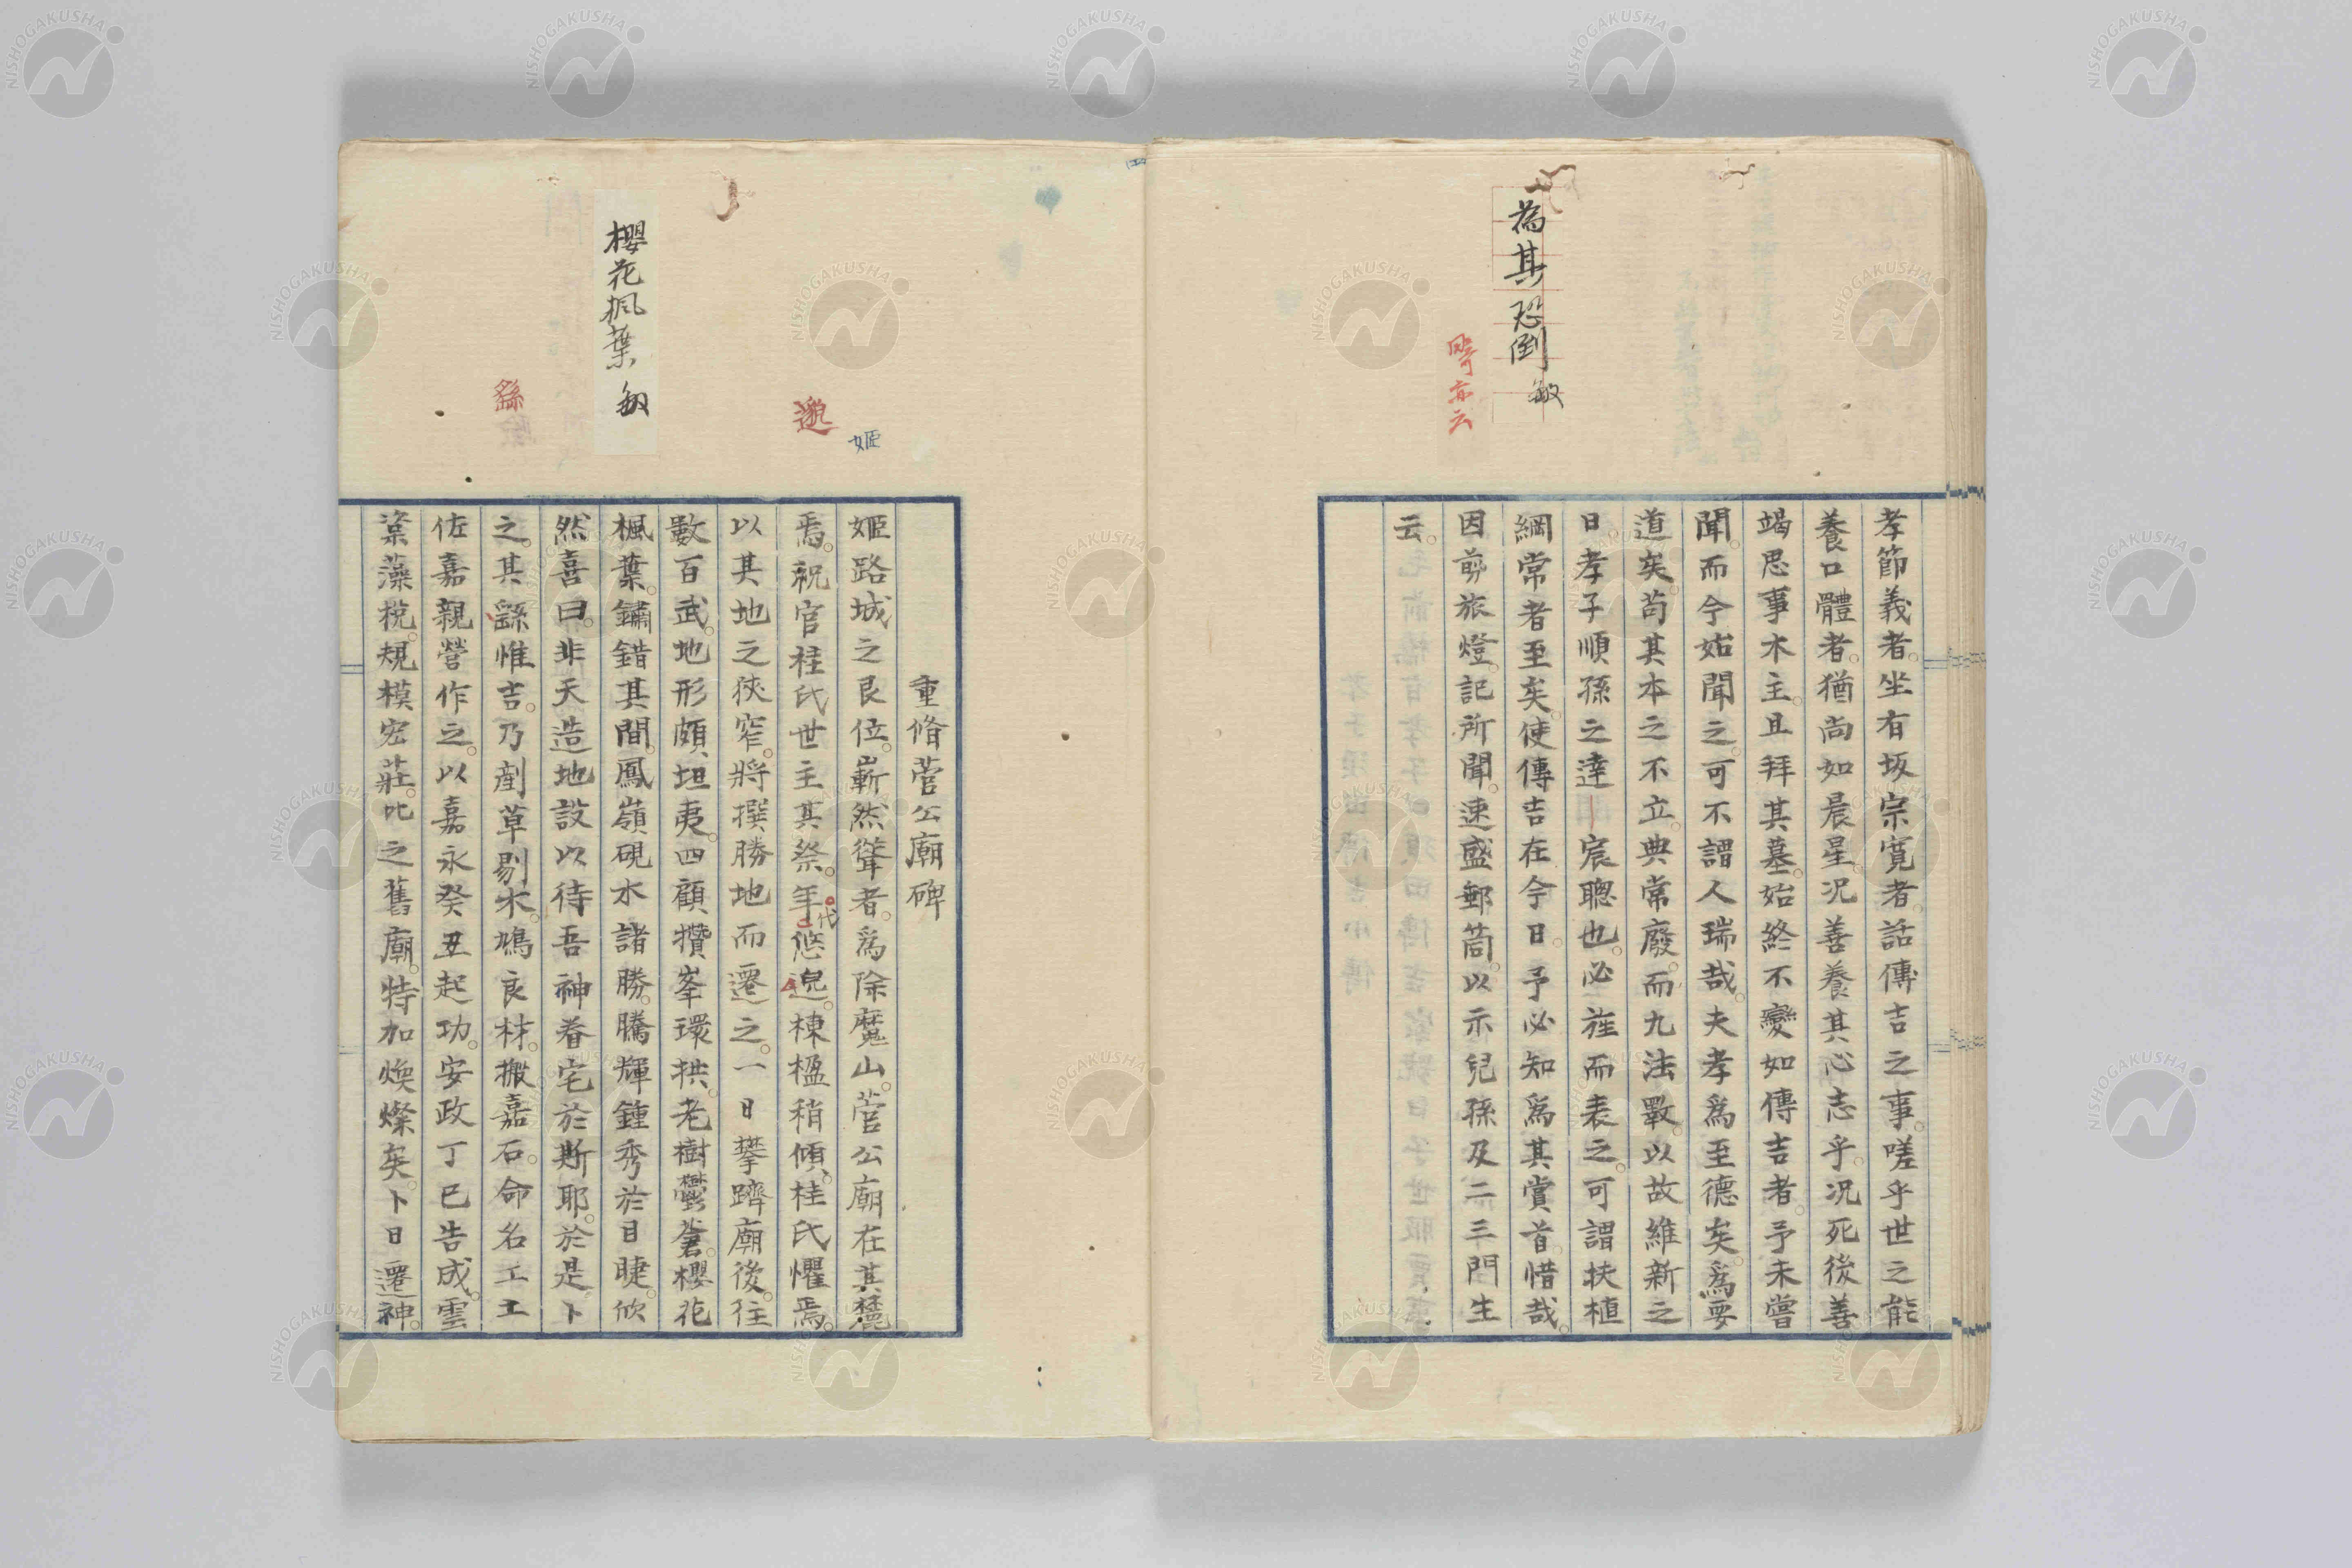 為其恐倒 敏
孝節義者。坐有坂宗寛者。話傳吉之事。嗟乎世之能
養口體者。猶尚如晨星。況善養其心志乎。況死後善
竭思事木主。且拜其墓。始終不變如傳吉者。予未嘗
聞。而今始聞之。可不謂人瑞哉。夫孝爲至德矣。爲要
道矣。苟其本之不立。典常廢。而九法斁。以故維新之
日。孝子順孫之達宸聰也。必旌而表之。可謂扶植
綱常者至矣。使傳吉在今日。予必知爲其賞首。惜哉。
因剪旅燈。記所聞。速盛郵筒。以示兒孫及二三門生
云。
姬
邈
櫻花楓葉 敏
繇
重脩菅公廟碑
姬路城之艮位。嶄然聳者。爲除魔山。菅公廟在其麓
焉。祝官桂氏世主其祭。年代悠邈。棟楹稍傾。桂氏懼焉。
以其地之狹窄。將撰勝地而遷之。一日攀躋廟後。往
數百武。地形頗坦夷。四顧攢峯環拱。老樹鬱蒼。櫻花
楓葉。鏽錯其間。鳳嶺硯水諸勝。騰輝鍾秀於目睫。欣
然喜曰。非天造地設以待吾神眷宅於斯耶。於是卜
之。其繇惟吉。乃剷草剔木。鳩良材。搬嘉石。命名工工
佐嘉親營作之。以嘉永癸丑起功。安政丁巳告成。雲
楶藻梲。規模宏莊。比之舊廟。特加煥燦矣。卜日遷神。